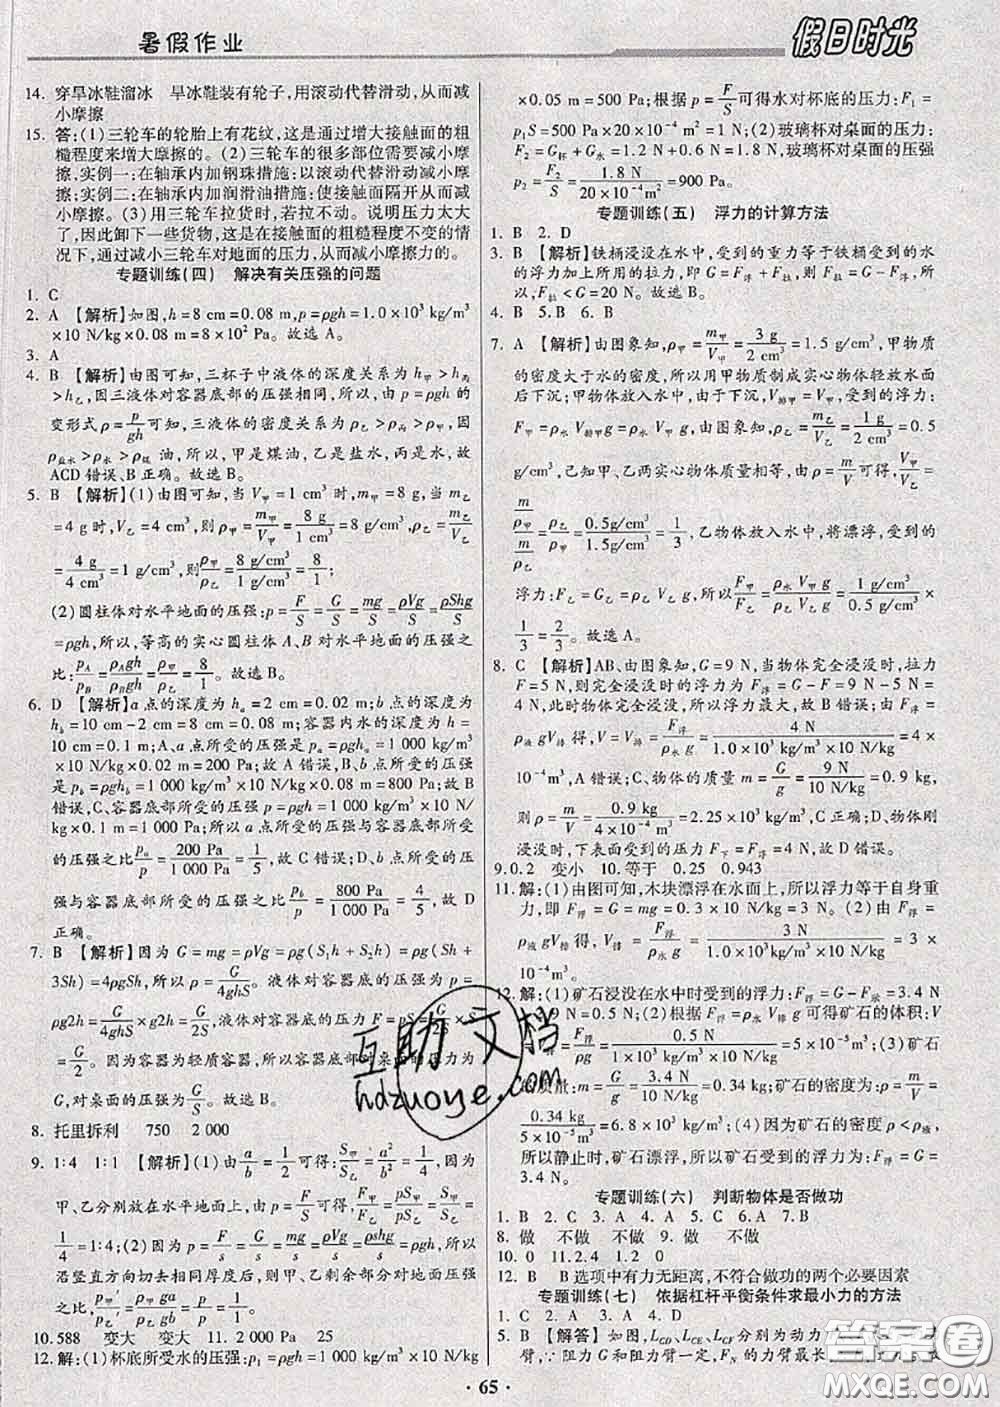 暑假作业
假日时光
14. 穿旱冰鞋溜冰 旱冰鞋装有轮子,用滚动代替滑动,从而减
小摩擦
15. 答:(1)三轮车的轮胎上有花纹,这是通过增大接触面的粗
糙程度来增大摩擦的。(2)三轮车的很多部位需要减小摩
擦,实例一:在轴承内加钢珠措施:以滚动代替滑动减小摩
擦;实例二:在轴承内加润滑油措施:使接触面隔开从而减
小摩擦。(3)用三轮车拉货时,若拉不动。说明压力太大
了,因此卸下一些货物,在接触面的粗糙程度不变的情况
下,通过减小三轮车对地面的压力,从而减小摩擦力的。
专题训练(四) 解决有关压强的问题
1. C
2. A 【解析】如图,h=8 cm=0.08 m,p=ρgh=1.0×10³ kg/m³
×10 N/kg×0.08 m=8×10² Pa。故选 A。
3. A
4. B 【解析】由图可知,三杯子中液体的深度关系为 h甲>h丙
>h乙,因三液体对容器底部的压强相同,所以,由 p=ρgh 的
变形式 ρ=p/gh 可知,三液体的密度关系为 ρ乙>ρ丙>ρ甲,因
ρ盐水>ρ水>ρ煤 油,所以,甲是煤油,乙是盐水,丙是水,故
ACD 错误、B 正确。故选 B。
5. B 【解析】(1)由图可知,当 V甲=1 cm³ 时,m甲=8 g,当 m乙
=4 g 时,V乙=4 cm³,则 ρ甲=m甲/V甲=8 g/1 cm³=8 g/cm³,ρ乙=m乙/V乙
=4 g/4 cm³=1 g/cm³,则 ρ甲/ρ乙=8 g/cm³/1 g/cm³=8/1;
(2)圆柱体对水平地面的压强:p=F/S=G/S=mg/S=ρVg/S=ρShg/S
=ρgh,所以,等高的实心圆柱体 A、B 对水平地面的压强之
比:pA/pB=ρAgh/ρBgh=ρ甲/ρ乙=8/1。故选 B。
6. D 【解析】a 点的深度为 ha=2 cm=0.02 m;b 点的深度为
hb=10 cm-2 cm=8 cm=0.08 m;容器内水的深度为 h=
10 cm=0.1 m;A、a 点所受的压强是 pa=ρgha=1 000 kg/m³
×10 N/kg×0.02 m=200 Pa;故 A 错误、B、b 点所受的压强
是 pb=ρghb=1 000 kg/m³×10 N/kg×0.08 m=800 Pa,故 B
错误,C、容器底部所受的压强 p=ρgh=1 000 kg/m³×10 N/
kg×0.1 m=1 000 Pa;所以 a 点所受的压强与容器底部所受
的压强之比 pa/p=200 Pa/1 000 Pa=1/5,故 C 错误;D、b 点所受的压
强与容器底部所受的压强之比 pb/p=800 Pa/1 000 Pa=4/5,故 D
正确。
7. B 【解析】因为 G=mg=ρVg=ρg(S₁h+S₂h)=ρg(Sh+
3Sh)=4ρgSh,所以 ρ=G/4ghS。液体对容器底的压强 p=
ρg2h=G/4ghS×g2h=G/2S,液体对容器底的压力 F=
G/2。因为容器为轻质容器,所以容器对桌面的压力为
G,对桌面的压强为 G/S。故选 B。
8. 托里拆利 750 2 000
9. 1:4 1:1 【解析】(1)由 a/b=1/2 可得:S甲/S乙=a²/b²=(1/2)²=
1/4,由 p=F/S 可得:F甲/F乙=pS甲/pS乙=S甲/S乙
=1:4;(2)由 p=F/s=G/s=mg/s=ρVg/s=ρshg/s=ρgh,所以
沿竖直方向切去相等高度,则甲、乙剩余部分对地面的压强
之比
10. 588 变大 变大 11. 2 000 Pa 25
12. 解:(1)杯底所受水的压强:p₁=ρgh=1 000 kg/m³×10 N/kg
×0.05 m=500 Pa;根据 p=F/S 可得水对杯底的压力:F₁=
F₂=G杯+G水=1.8 N,玻璃杯对桌面的压强
p₂=F₂/S=1.8 N/20×10⁻⁴ m²=900 Pa。
专题训练(五) 浮力的计算方法
1. B 2. D
3. B 【解析】铁桶浸没在水中,受到的重力等于铁桶受到的水
的浮力加上所用的拉力,所以,G=F浮+F拉,则 F拉=G-F浮,
所以,F拉<G=20 N。故选 B。
4. B 5. B 6. B
7. A 【解析】由图象知,ρ甲=m甲/V甲=3 g/2 cm³=1.5 g/cm³,甲物质
的密度大于水的密度,所以用甲物质制成实心物体轻放水面
后下沉;甲物体放入水中,由于下沉,V排甲=V甲,受到的浮力:
F甲=ρ水 V排甲g=ρ水 V甲 g;由图象知,ρ乙=m乙/V乙=1 g/2 cm³=0.5
g/cm³,已知甲、乙两实心物体质量相等,由 ρ=m/V 可得,V甲/V乙=
(m/ρ甲)/(m/ρ乙)=ρ乙/ρ甲=0.5g/cm³/1.5g/cm³=1/3,乙物体放入水中,将漂浮,受到的
浮力:F乙=G乙=ρ乙 V乙 g,所以,F甲/F乙=ρ水 V甲 g/ρ乙 V乙 g=1 g/cm³/0.5 g/cm³×
1/3=2/3。故选 A。
8. C 【解析】AB、由图象知,G=9 N,当物体完全浸没时,拉力
F=5 N,则物体完全浸没时受到的浮力 F浮=G-F=9 N-5 N=
4 N,此时物体完全浸没,所以浮力最大,故 B 错误;由 F浮=
ρ液 gV排 可得,V=V排=F浮/ρ水 g=4 N/1.0×10³ kg/m³×10 N/kg=4×
10⁻⁴m³,A 错误;C、物体的质量 m=G/g=9 N/10 N/kg=0.9 kg,
则 ρ=m/V=0.9 kg/4×10⁻⁴ m³=2.25×10³ kg/m³,C 正确;D、物体刚
浸没时,下表面受到的压力 F下=F浮=4 N,故 D 错误。
9. 0.2 变小 10. 等于 0.25 0.943
11. 解:(1)由图可知,木块漂浮在水面上,所以浮力等于自身重
力,即 F浮=G=mg=0.3×10 N/kg=3 N。(2)由 F浮=
ρ液 gV排 得,V排=F浮/ρ水 g=3 N/1.0×10³ kg/m³×10 N/kg=3×
10⁻⁴m³。
12. 解:(1)矿石浸没在水中时受到的浮力:F浮=G-F示=3.4 N
(3)矿石
的质量:m=G/g=3.4 N/10 N/kg=0.34 kg,矿石的密度为:ρ=m/V=
0.34 kg/5×10⁻⁵ m³=6.8×10³ kg/m³;(4)因为矿石的密度 ρ<ρ液,
所以静止时,矿石漂浮,所以矿石受到的浮力:F浮=G=
3.4 N。
专题训练(六) 判断物体是否做功
1. B 2. C 3. A 4. D 5. C 6. A 7. B
8. 做 不做 不做 9. 做 不做
10. 0 11. 2.4 1.2 0
12. B B 选项中有力无距离,不符合做功的两个必要因素
专题训练(七) 依据杠杆平衡条件求最小力的方法
1. C 2. A 3. D 4. A
5. B 【解答】如图,LCD、LCE、LCF 分别为动力
臂,∵阻力 G 和阻力臂一定,FN 的力臂最长
· 65 ·
互助文档
hdzuoye.com
答案圈
MXQE.COM